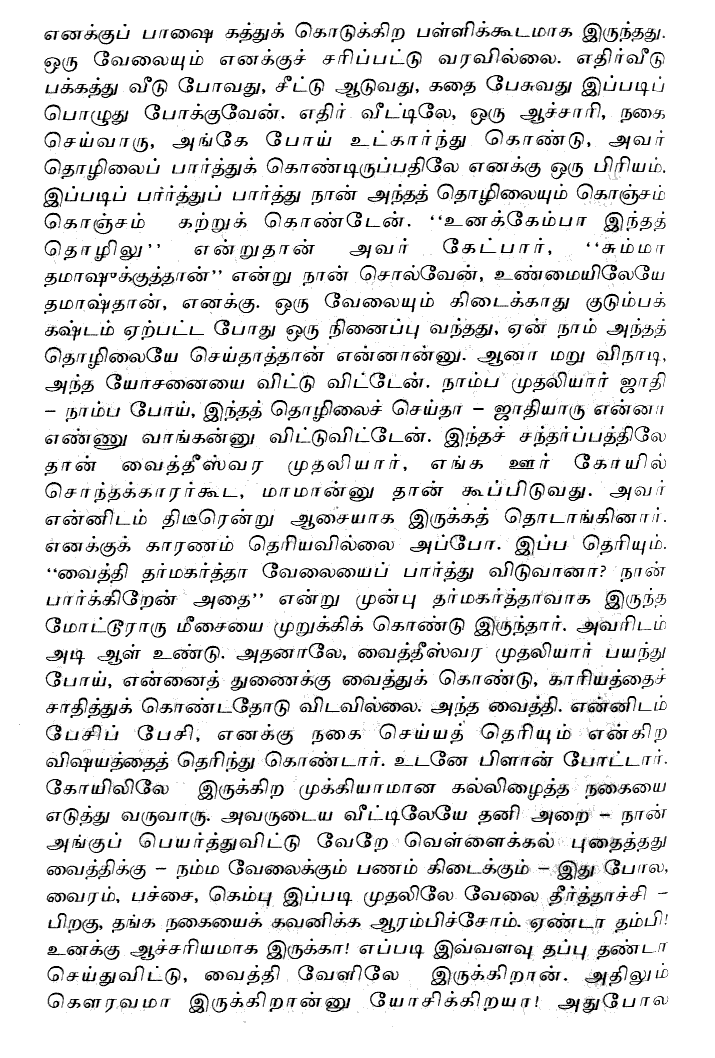 எனக்குப் பாஷை கத்துக் கொடுக்கிற பள்ளிக்கூடமாக இருந்தது.
ஒரு வேலையும் எனக்குச் சரிப்பட்டு வரவில்லை. எதிர்வீடு
பக்கத்து வீடு போவது, சீட்டு ஆடுவது, கதை பேசுவது இப்படிப்
பொழுது போக்குவேன். எதிர் வீட்டிலே, ஒரு ஆச்சாரி, நகை
செய்வாரு, அங்கே போய் உட்கார்ந்து கொண்டு, அவர்
தொழிலைப் பார்த்துக் கொண்டிருப்பதிலே எனக்கு ஒரு பிரியம்.
இப்படிப் பார்த்துப் பார்த்து நான் அந்தத் தொழிலையும் கொஞ்சம்
கொஞ்சம் கற்றுக் கொண்டேன். ‘‘உனக்கேம்பா இந்தத்
தொழிலு’’ என்றுதான் அவர் கேட்பார், ‘‘சும்மா
தமாஷுக்குத்தான்’’ என்று நான் சொல்வேன், உண்மையிலேயே
தமாஷ்தான், எனக்கு. ஒரு வேலையும் கிடைக்காது குடும்பக்
கஷ்டம் ஏற்பட்ட போது ஒரு நினைப்பு வந்தது, ஏன் நாம் அந்தத்
தொழிலையே செய்தாத்தான் என்னான்னு. ஆனா மறு விநாடி,
அந்த யோசனையை விட்டு விட்டேன். நாம்ப முதலியார் ஜாதி
– நாம்ப போய், இந்தத் தொழிலைச் செய்தா – ஜாதியாரு என்னா
எண்ணு வாங்கன்னு விட்டுவிட்டேன். இந்தச் சந்தர்ப்பத்திலே
தான் வைத்தீஸ்வர முதலியார், எங்க ஊர் கோயில்
சொந்தக்காரர்கூட, மாமான்னு தான் கூப்பிடுவது. அவர்
என்னிடம் திடீரென்று ஆசையாக இருக்கத் தொடாங்கினார்.
எனக்குக் காரணம் தெரியவில்லை அப்போ. இப்ப தெரியும்.
‘‘வைத்தி தர்மகர்த்தா வேலையைப் பார்த்து விடுவானா? நான்
பார்க்கிறேன் அதை’’ என்று முன்பு தர்மகர்த்தாவாக இருந்த
மோட்டூராரு மீசையை முறுக்கிக் கொண்டு இருந்தார். அவரிடம்
அடி ஆள் உண்டு. அதனாலே, வைத்தீஸ்வர முதலியார் பயந்து
போய், என்னைத் துணைக்கு வைத்துக் கொண்டு, காரியத்தைச்
சாதித்துக் கொண்டதோடு விடவில்லை. அந்த வைத்தி. என்னிடம்
பேசிப் பேசி, எனக்கு நகை செய்யத் தெரியும் என்கிற
விஷயத்தைத் தெரிந்து கொண்டார். உடனே பிளான் போட்டார்.
கோயிலிலே இருக்கிற முக்கியமான கல்லிழைத்த நகையை
எடுத்து வருவாரு. அவருடைய வீட்டிலேயே தனி அறை – நான்
அங்குப் பெயர்த்துவிட்டு வேறே வெள்ளைக்கல் புதைத்தது
வைத்திக்கு – நம்ம வேலைக்கும் பணம் கிடைக்கும் – இது போல,
வைரம், பச்சை, கெம்பு இப்படி முதலிலே வேலை தீர்த்தாச்சி –
பிறகு, தங்க நகையைக் கவனிக்க ஆரம்பிச்சோம். ஏண்டா தம்பி!
உனக்கு ஆச்சரியமாக இருக்கா! எப்படி இவ்வளவு தப்பு தண்டா
செய்துவிட்டு, வைத்தி வேளிலே இருக்கிறான். அதிலும்
கௌரவமா இருக்கிறான்னு யோசிக்கிறயா! அதுபோல